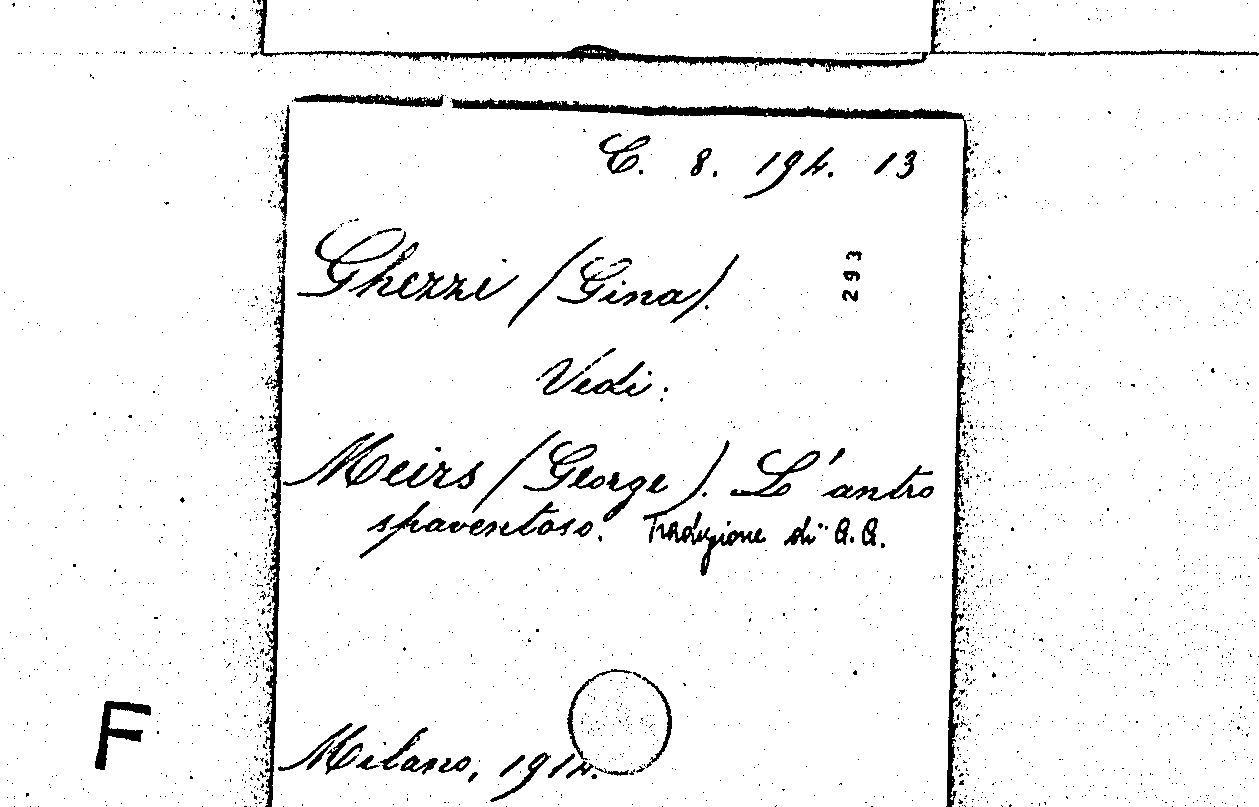 C. 8. 194. 13
Ghezzi (Gina).
293
Vedi:
Meirs (George). L'antro
spaventoso. Traduzione di G. G.
F
Milano, 1914.